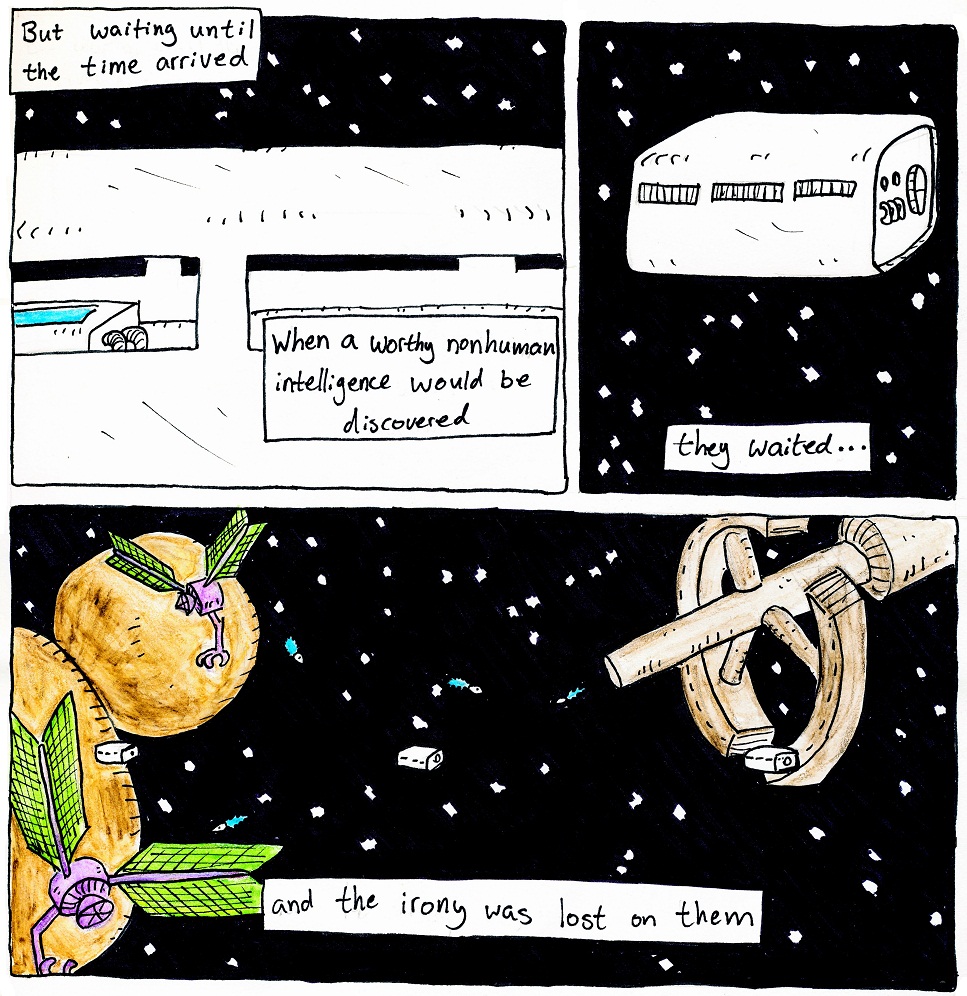 But waiting until
the time arrived
When a worthy nonhuman
intelligence would be
discovered
they waited...
and the irony was lost on them